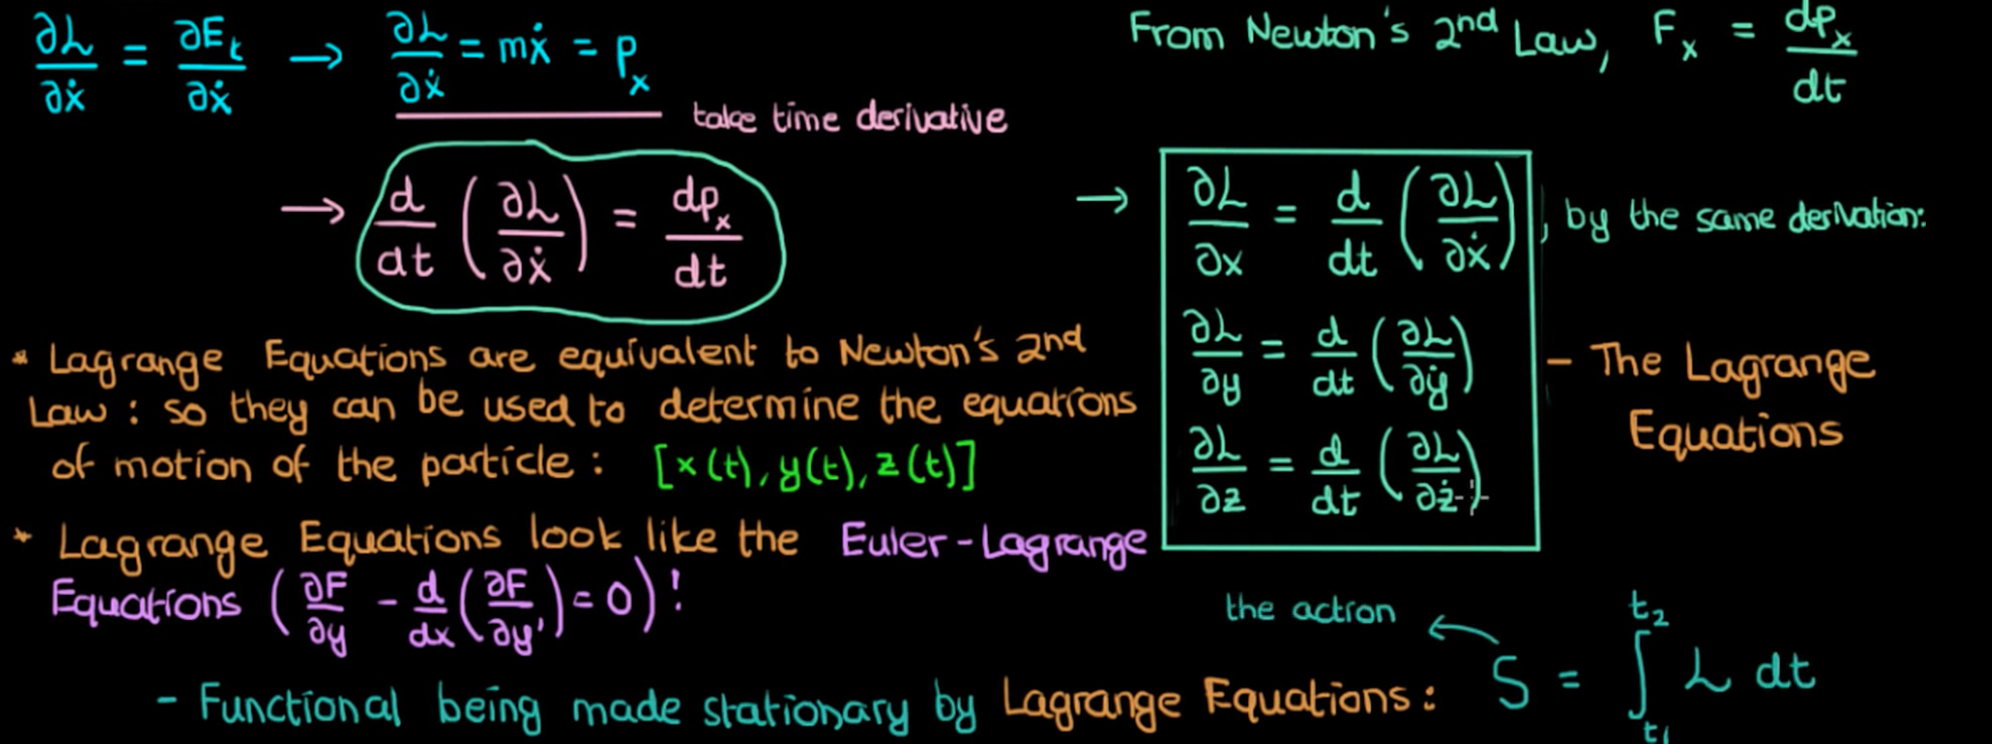 ∂L/∂ẋ = ∂E_t/∂ẋ → ∂L/∂ẋ = mẋ = p_x
take time derivative
→ d/dt (∂L/∂ẋ) = dp_x/dt
From Newton's 2nd Law, F_x = dp_x/dt
→ ∂L/∂x = d/dt (∂L/∂ẋ), by the same derivation:
∂L/∂y = d/dt (∂L/∂ẏ)
∂L/∂z = d/dt (∂L/∂ż)
- The Lagrange
Equations
* Lagrange Equations are equivalent to Newton's 2nd
Law : so they can be used to determine the equations
of motion of the particle : [x(t), y(t), z(t)]
* Lagrange Equations look like the Euler-Lagrange
Equations (∂F/∂y - d/dx (∂F/∂y') = 0)!
the action
- Functional being made stationary by Lagrange Equations : S = ∫_{t₁}^{t₂} L dt